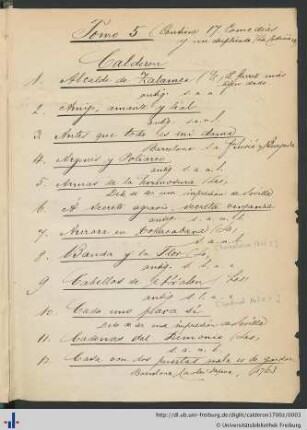 Tomo 5 (Contiene 17 Comedias
y un duplicado
Calderon
1. Alcalde de Zalamea
antig. s. a. l.
2. Amigo, amante y leal
antig. s. a. l.
3. Antes que todo es mi dama
Barcelona
4. Argenis y Poliarco
s. a. n. l.
5. Armas de la hermosura (Las,
Debe de ser una impresion de Sevilla
6. A secreto agravio, secreta venganza
antig. s. a. n. l.
7. Aurora en Copacabana (La,
s. a. n. l.
8. Banda y la Flor (La,
antig. s. l. a.
9. Cabellos de Absalon (Los
antig. s. l. a.
10. Cada uno para sí
Debe de ser una impresion de Sevilla
11. Cadenas del Demonio (Las,
s. a. n. l.
12. Casa con dos puertas mala es de guardar
Barcelona, 1763
http://dl.ub.uni-freiburg.de/diglit/calderon1780z/0003
© Universitätsbibliothek Freiburg